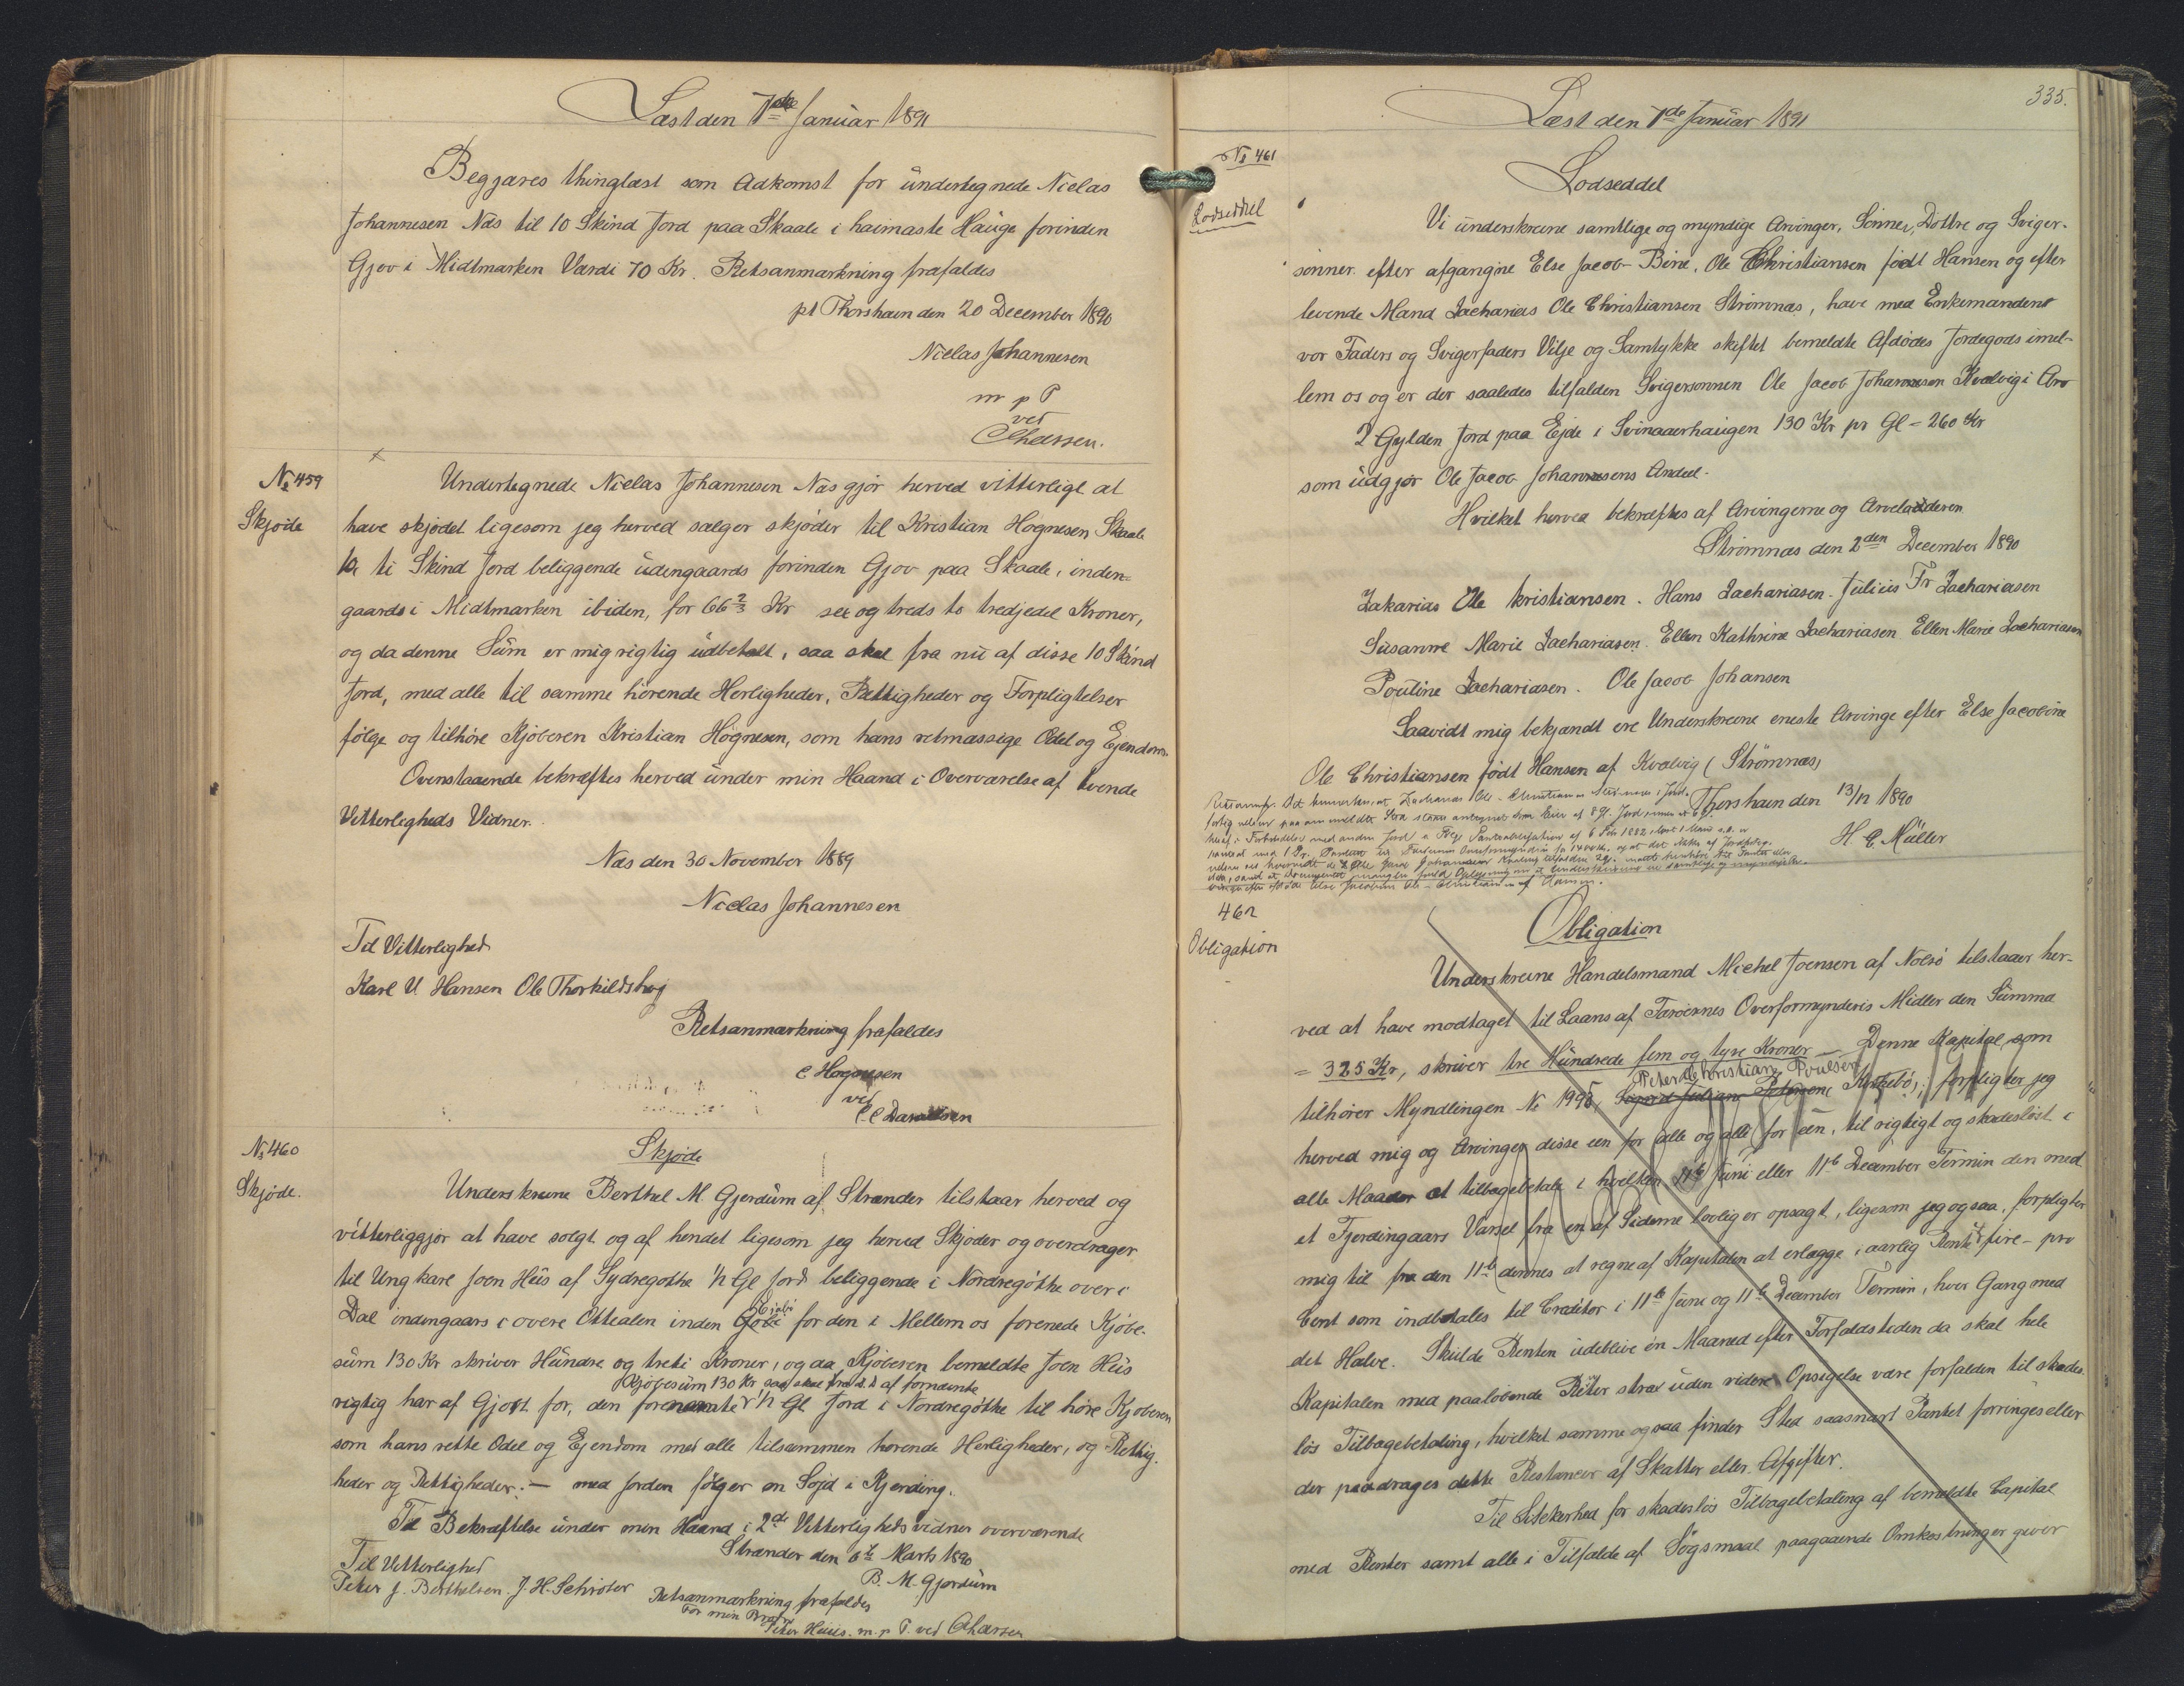 Læst den 7de Januar 1891
Begjæres thinglæst som Adkomst for undertegnede Niclas
Johannesen Næs til 10 Skind Jord paa Skaale i haimaste Hauge forinden
Gjov i Midtmarken Værdi 70 Kr. Retsanmærkning frafaldes
pt Thorshavn den 20 December 1890
Niclas Johannesen
m p P
ved
No 459
Skjøde
Undertegnede Niclas Johannesen Næs gjør herved vitterligt at
have skjødet ligesom jeg herved sælger skjøder til Kristian Høgnesen Skaale
10 ti Skind Jord beliggende udengaards forinden Gjov paa Skaale, inden-
gaards i Midtmarken ibiden, for 66 2/3 Kr sex og treds to tredjedel Kroner,
og da denne Sum er mig rigtig udbetalt, saa skal fra nu af disse 10 Skind
Jord, med alle til samme hørende Herligheder, Rettigheder og Forpligtelser
følge og tilhøre Kjøberen Kristian Høgnesen, som hans retmæssige Odel og Ejendom.
Ovenstaaende bekræftes herved under min Haand i Overværelse af tvende
Vitterligheds Vidner.
Næs den 30 November 1889
Niclas Johannesen
Til Vitterlighed
Karl U Hansen Ole Thorkildshøj
Retsanmærkning frafaldes
C Høgnesen
ved
C C Danielsen
No 460
Skjøde.
Skjøde
Underskrevne Berthel M. Gjerdum af Strænder tilstaar herved og
vitterliggjør at have solgt og af hendet ligesom jeg herved Skjøder og overdrager
til Ungkarl Joen Hüs af Sydregøthe 1/2 Gl Jord beliggende i Nordregøthe over i
Dal indengaars i overe Ottealen inden for den i Mellem os forenede Kjøbe-
sum 130 Kr skriver Hundre og treti Kroner, og da Kjøberen bemeldte Joen Hüs
Kjøbesum 130 Kr saa skal fra d. d af fornævnte
rigtig har af Gjort for, den forenævnte 1/2 Gl Jord i Nordregøthe til høre Kjøberen
som hans rette Odel og Ejendom med alle tilsammen hørende Herligheder, og Rettig-
heder og Rettigheder: — med Jorden følger en Sojd i Rjending.
Til Bekræftelse under min Haand i 2de Vitterligheds vidner overværende
Strænder den 6te Marts 1890
Til Vitterlighed
B. M. Gjerdum
Peter J. Berthelsen. J. H. Schrøter
Retsanmærkning frafaldes
For min Broder
Peter Hüus. m. p P. ved
335.
Læst den 7de Januar 1891
No 461
Lodseddel
Lodseddel
Vi underskrevne samtlige og myndige Arvinger, Sønner, Døttre og Sviger-
sønner efter afgangne Else Jacob-Bine, Ole Christiansen født Hansen og efter
levende Mand Zacharias Ole Christiansen Strømnæs, have med Enkemandens
vor Faders og Svigerfaders Vilje og Samtykke skiftet bemeldte Afdødes Jordegods imel-
lem os og er der saaledes tilfalden Svigersønnen Ole Jacob Johannesen Kvalvig i Arv
2 Gylden Jord paa Ejde i Svinaaerhaugen 130 Kr pr Gl = 260 Kr
som udgjør Ole Jacob Johannesens Andeel.
Hvilket herved bekræftes af Arvingerne og Arveladeren
Strømnæs den 2den December 1890
Zakarias Ole kristiansen. Hans Zachariasen. Julius Fr Zachariasen
Susanne Marie Zachariasen. Ellen Kathrine Zachariasen Ellen Marie Zachariasen
Pouline Zachariasen. Ole Jacob Johansen
Saavidt mig bekjendt ere Underskrevne eneste Arvinge efter Else Jacobine
Ole Christiansen født Hansen af Kvalvig (Strømnæs)
Thorshavn den 13/12 1890
H. C. Müller
Retsanmkn. Det bemærkes, at Zacharias Ole Christiansen
462
Obligation
Obligation
Underskrevne Handelsmand Michel Joensen af Nolsø tilstaaer her-
ved at have modtaget til Laans af Færøernes Overformynderis Midler den Summa
= 325 Kr, skriver tre Hundrede fem og tyve Kroner — Denne Kapital, som
Peter Christian Poulsen
tilhører Myndlingen No 1998, Kirkebø, forpligter jeg
herved mig og Arvinger disse een for alle og alle for een, til rigtigt og skadesløst i
alle Maader at tilbagebetale i hvilken 11te Juni eller 11te December Termin den med
et Fjerdingaars Varsel fra en af Siderne lovlig er opsagt, ligesom jeg ogsaa, forpligter
mig til fra den 11te dennes at regne af Kapitalen at erlægge i aarlig Rente fire - pro
Cent som indbetales til Creditor i 11te Juni og 11te December Termin, hver Gang med
det Halve. Skulde Renten udeblive én Maaned efter Forfaldstiden da skal hele
Kapitalen med paaløbende Renter strax uden videre Opsigelse være forfalden til skades-
løs Tilbagebetaling, hvilket samme ogsaa finder Sted saasnart Pantet forringes eller
der paadrages dette Restancer af Skatter eller Afgifter.
Til Sikkerhed for skadesløs Tilbagebetaling af bemeldte Capital
med Renter samt alle i Tilfælde af Søgsmaal paagaaende Omkostninger giver